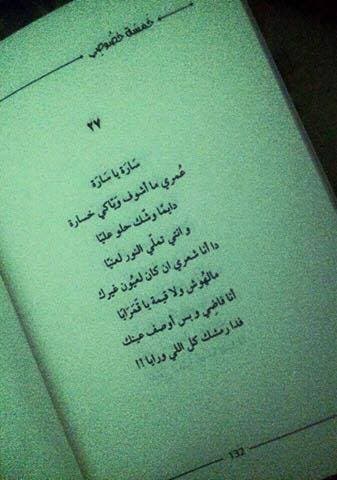 خمسة خصوصي
٢٧
سَارَة يا سَارَة
عُمري ما أشوف وَيّاكي خسارة
دايمًا وشّك حلو عليّا
وانتي تملّي النور لعنيّا
دا أنا شعري ان كان لعيون غيرك
مالهُوش ولا قيمة يا قمرايا
أنا فاضي وبس أوصف عينك
فدا رمشك كل اللي ورايا !!
132